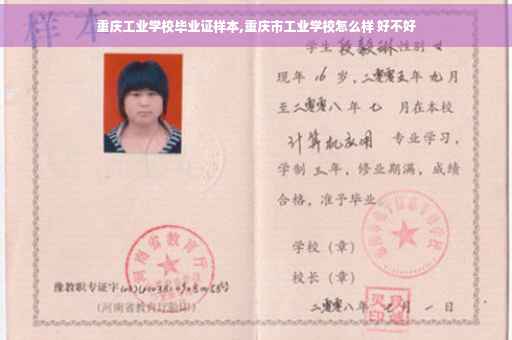 重庆工业学校毕业证样本,重庆市工业学校怎么样 好不好
样本
学生 段毅琳 性别 女
现年 16 岁,二零零五年 九 月
至二零零八年 七 月在本校
计算机应用 专业学习,
学制 三 年,修业期满,成绩
合格,准予毕业
学校(章)
校长(章)
二零零八年 月 一 日
河南省教育厅
豫教职专证字
(河南省教育厅验印)